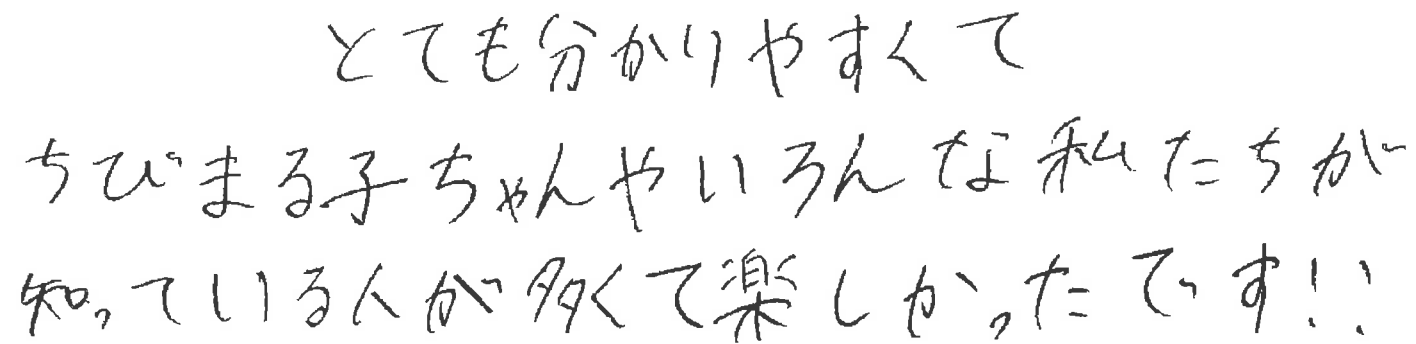 とても分かりやすくて
ちびまる子ちゃんやいろんな私たちが
知っている人が多くて楽しかったです!!